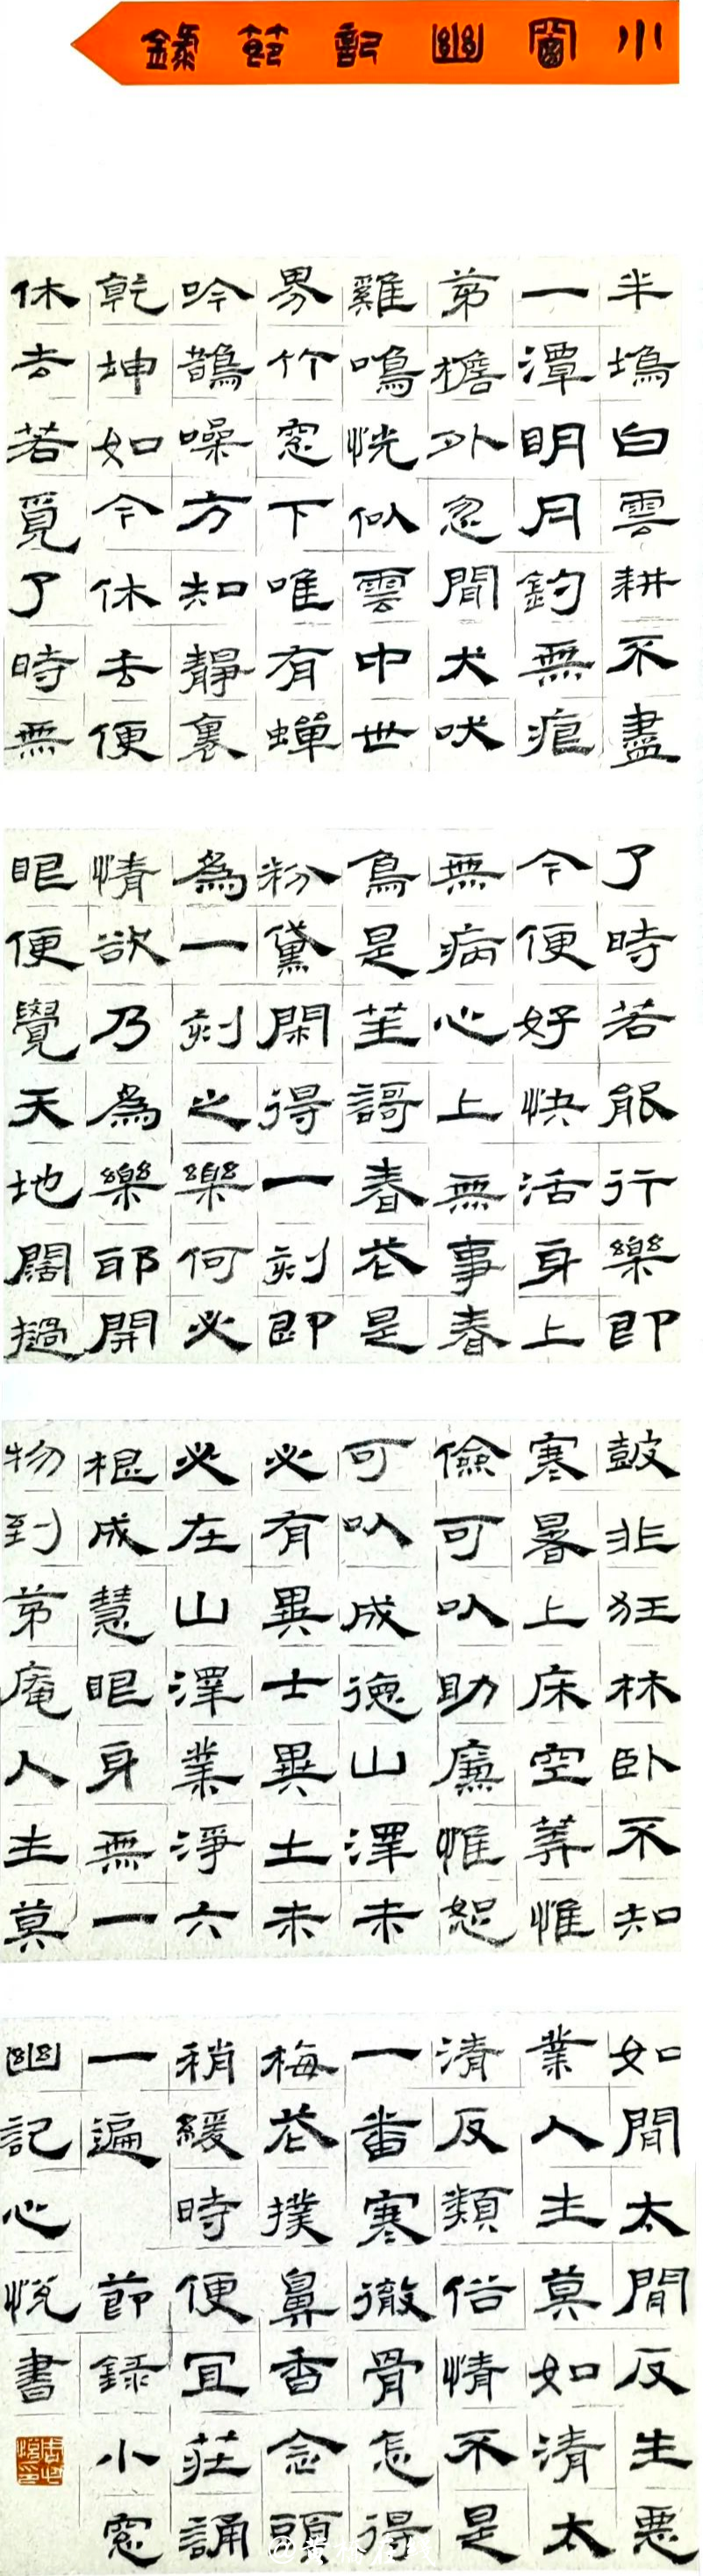 小窗幽記節錄
半塢白雲耕不盡
一潭明月釣無痕
茅檐外忽聞犬吠
雞鳴恍似雲中世
界竹窓下唯有蟬
吟鵲噪方知靜裏
乾坤如今休去便
休去若覓了時無
了時若能行樂即
今便好快活身上
無病心上無事春
鳥是笙謌春花是
粉黛閑得一刻即
為一刻之樂何必
情欲乃為樂耶開
眼便覺天地闊撾
鼓非狂林卧不知
寒暑上床空算惟
儉可以助廉惟恕
可以成德山澤未
必有異士異士未
必在山澤業淨六
根成慧眼身無一
物到茅庵人生莫
如閒太閒反生惡
業人生莫如清太
清反類俗情不是
一番寒徹骨怎得
梅花撲鼻香念頭
稍緩時便宜莊誦
一遍 節錄小窓
幽記心悅書